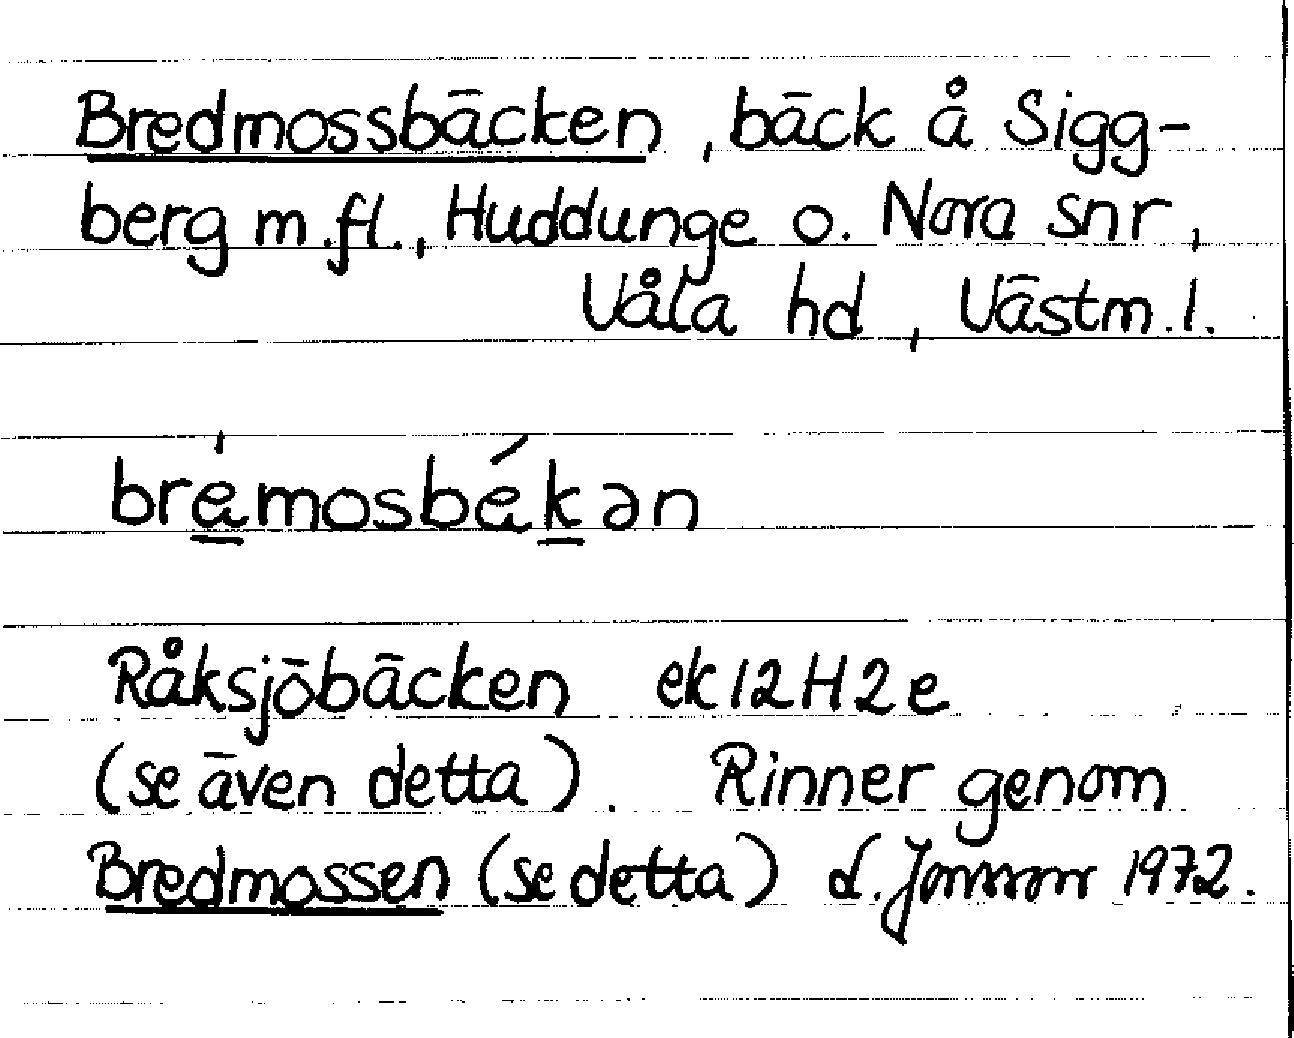 Bredmossbäcken, bäck å Sigg-
berg m.fl., Huddunge o. Nora snr,
Våla hd, Västm.l.
bré̲mosbä́k̲ən
Råksjöbäcken ek12H2e
(se även detta). Rinner genom
Bredmossen (se detta) L. Jonsson 1972.